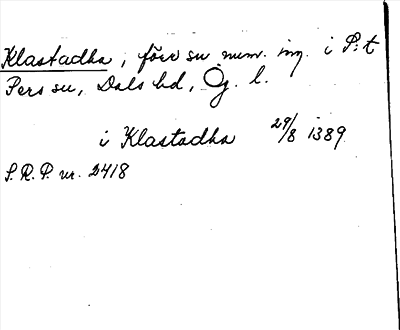 Klastadha, förr su num. ing. i S:t
Pers su, Dals hd, Ög. l.
i Klastadha 29/8 1389
S.R.P. nr. 2418